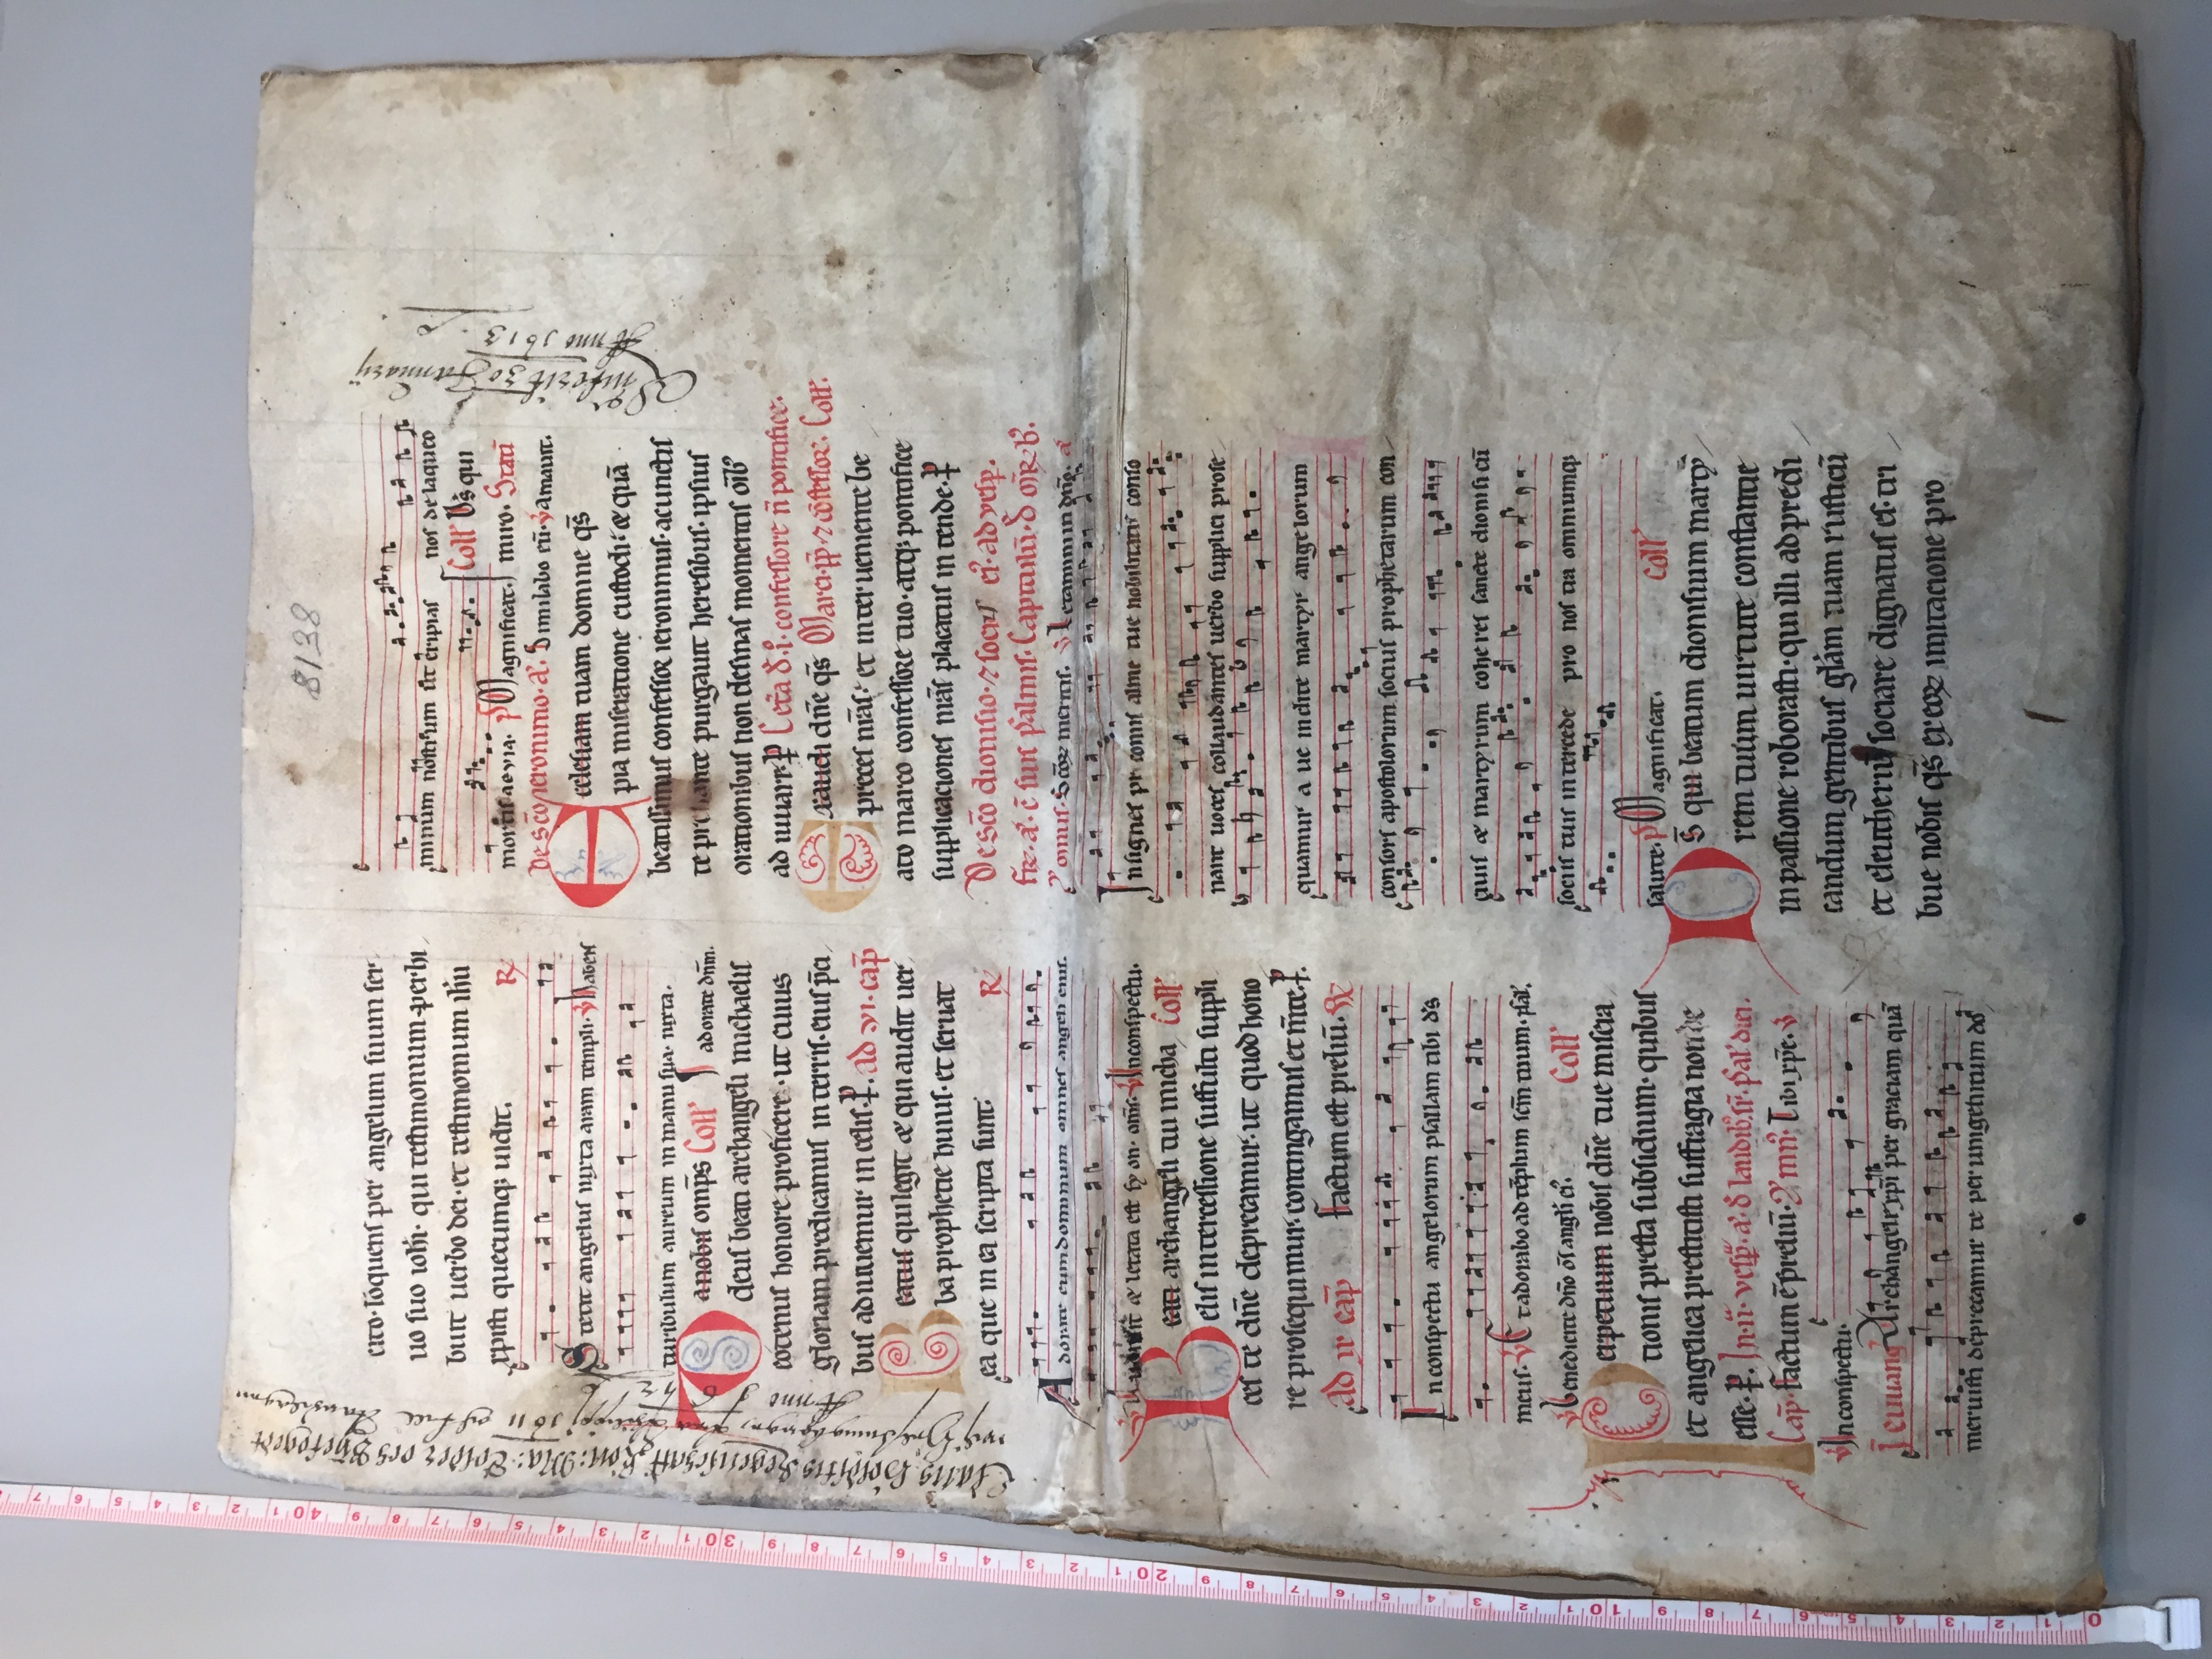 8138
cito· loquens per angelum suum ser
uo suo ioħi· qui testimonium perhi
buit uerbo dei· et testimonium iħu
xpisti quecumq; uidit. R
Stetit angelus iuxta aram templi· V habens
turibulum aureum in manu sua· iuxta·
Da nobis omp̄s Coll' adorate dn̄m.
deus beati archangeli michaelis
eotenus honore proficere· ut cuius
gloriam predicamus in terris· eius p̄ci
bus adiuuemur in celis· P. ad vi· cap̄
Beatus qui legit & qui audit uer
ba prophetie huius· et seruat
ea que in ea scripta sunt· R
Adorate eum dominum omnes angeli eius.
V Audiuit & letata est syon· om̄s· V In conspectu·
Beati archangeli tui micha Coll'
elis intercessione suffulti suppli
ces te dn̄e deprecamur· ut quod hono
re prosequimur· contingamus et m̄te· P.
ad ix cap̄ Factum est preliū· R
In conspectu angelorum psallam tibi d's
meus· V Et adorabo ad tēplum scm̄ tuum· psal'.
V Benedicite dn̄o om̄s angl'i ei'. Coll'
Perpetuum nobis dn̄e tue misera
tionis presta subsidium· quibus
et angelica prestitisti suffragia non de
esse· P. In· ii· vesp̄· a'· d' laudib'· sr̄· psal' diei·
Cap̄· Factum ē preliū· Ymn'· Tibi xp̄e· V
V In conspectu·
I euuang Archangele xpi per graciam quā
meruisti deprecamur te per unigenitum do
minum nostrum ut eripias nos de laqueo
mortis aevia· p̄s Magnificat· Coll' D's qui
miro· Stati
De sc̄o ieronimo· a'· Similabo eū· V amauit·
Ecclesiam tuam domine q̄s
pia miseratione custodi· & quā
beatissimus confessor ieronimus· a cunctis
te prestante purgauit heresibus· ipsius
orationibus non desinas momentis oīb'
ad iuuare· P Cet̄a d' i°· confessore n̄ pontifice·
Exaudi dn̄e q̄s Marci· pp̄· & cōfessor· Coll'.
preces nr̄as· et interueniente be
ato marco confessore tuo· atq; pontifice
supplicaciones nr̄as placatus in tende· P
De sc̄o dionisio· & sociis ei'· ad vesp̄·
fr̄· a'· c̄ suis psalmis· Capitulū· d' mr̄b'·
Ymnus· Scōr meritis· V Letamini in dn̄o· a'
Insignes preconiis alme tue nobilitatis conso
nant uoces collaudantes uerbo supplici prose
quamur a ue inclite martyr angelorum
consors apostolorum socius prophetarum con
ciuis & martyrum coheres sancte dionisi cū
sociis tuis intercede pro nos tra omniumq;
salute· p̄s Magnificat· Coll'
Ds̄ qui beatum dionisium marty
rem tuum uirtute constantie
in passione roborasti· qui illi ad predi
candum gentibus gl'am tuam rusticū
et eleutheriū sociare dignatus es· tri
bue nobis q̄s ex eor imitacione pro
Anno 1613